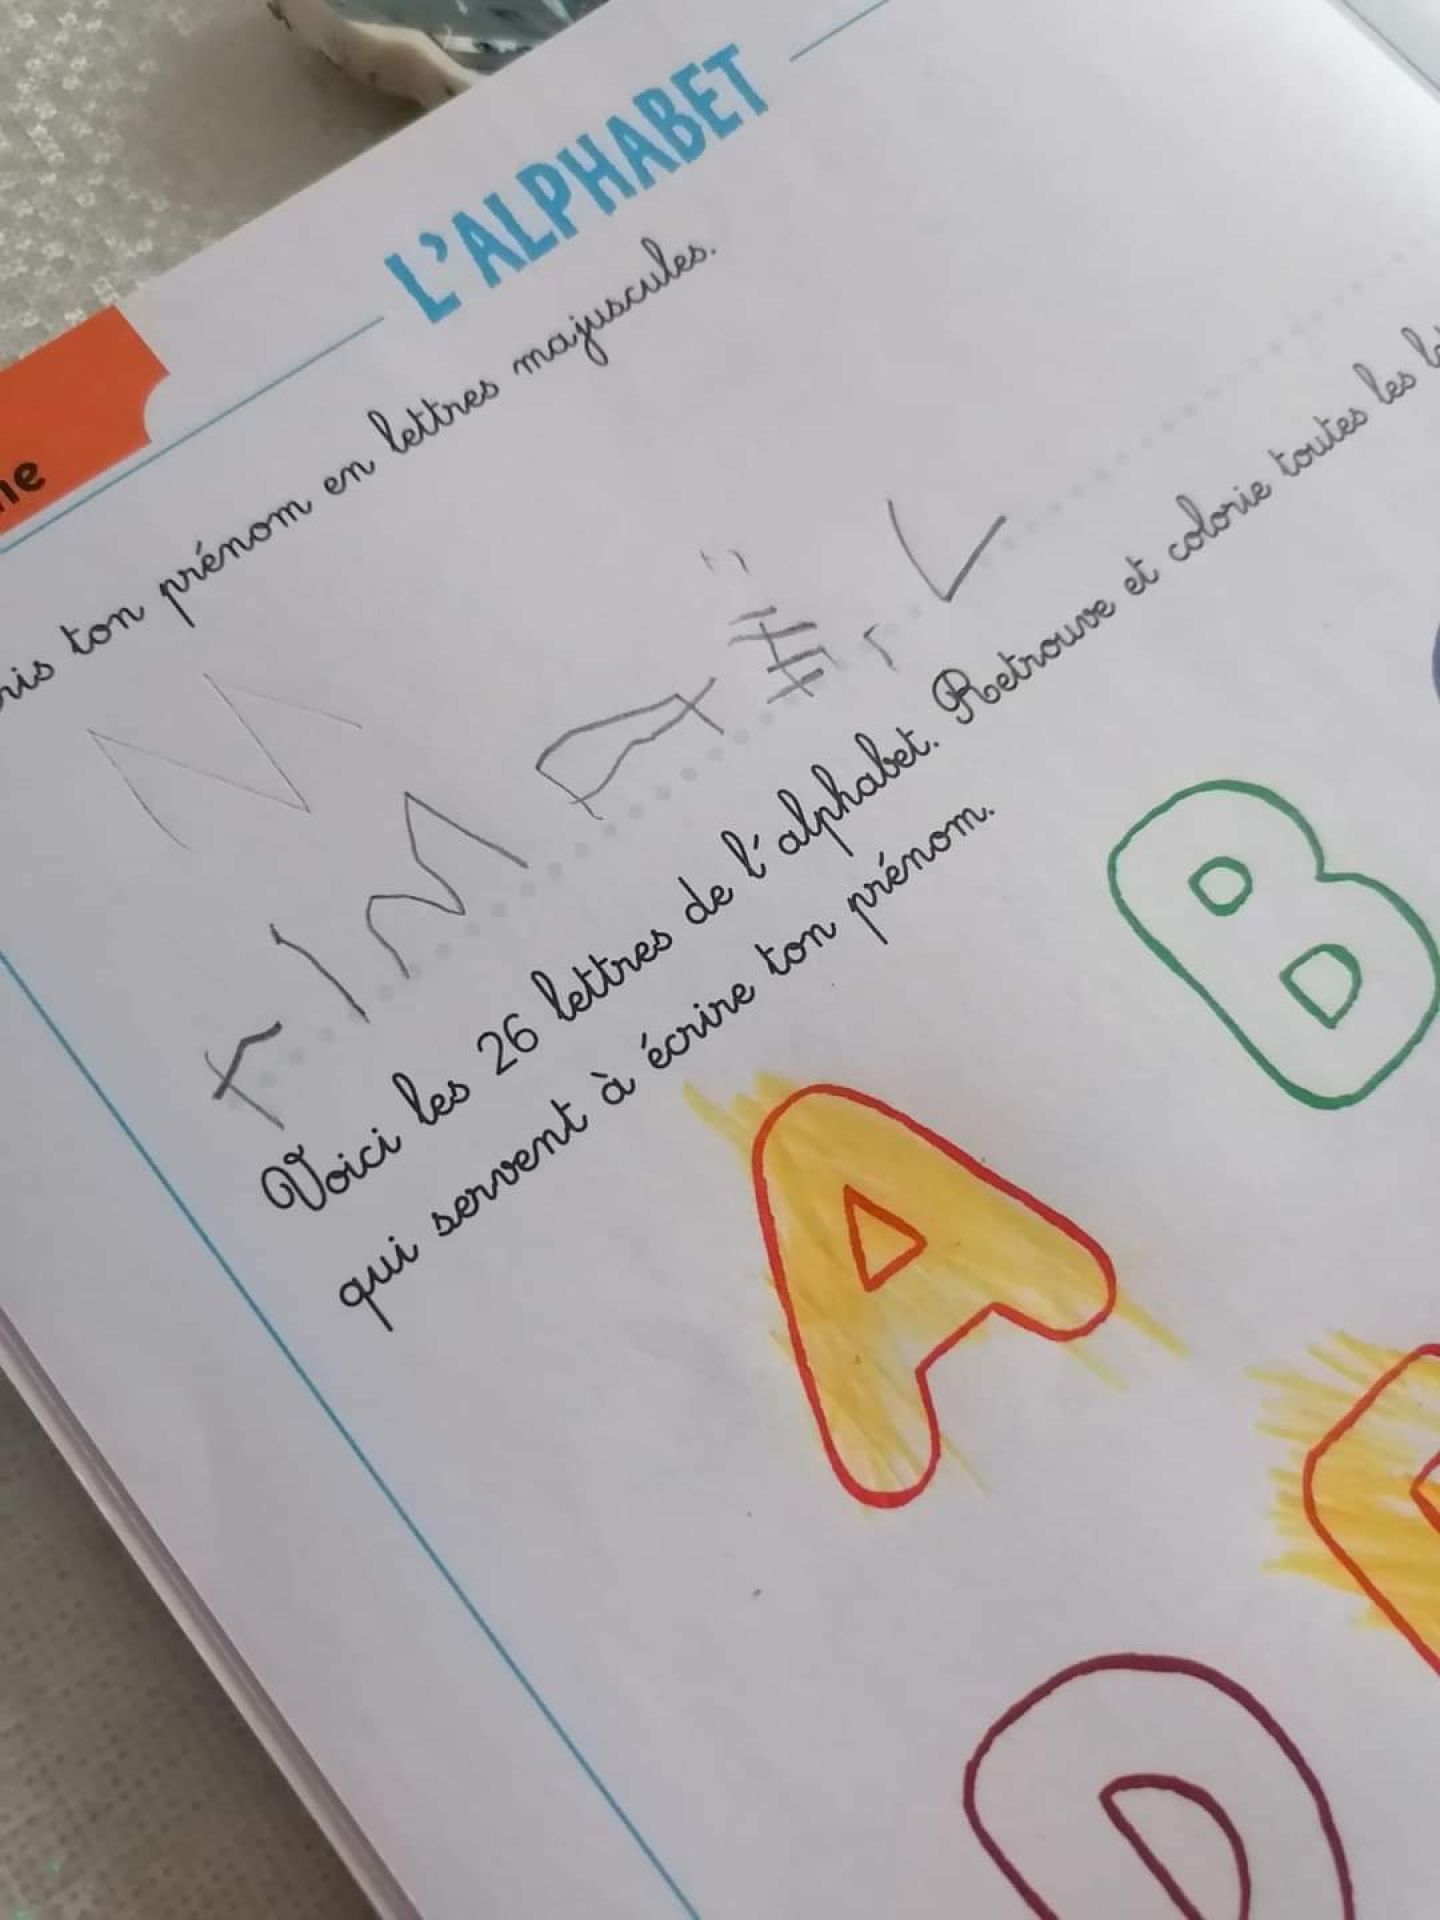 L'ALPHABET
ris ton prénom en lettres majuscules.
Voici les 26 lettres de l'alphabet. Retrouve et colorie toutes les
qui servent à écrire ton prénom.
A
B
D